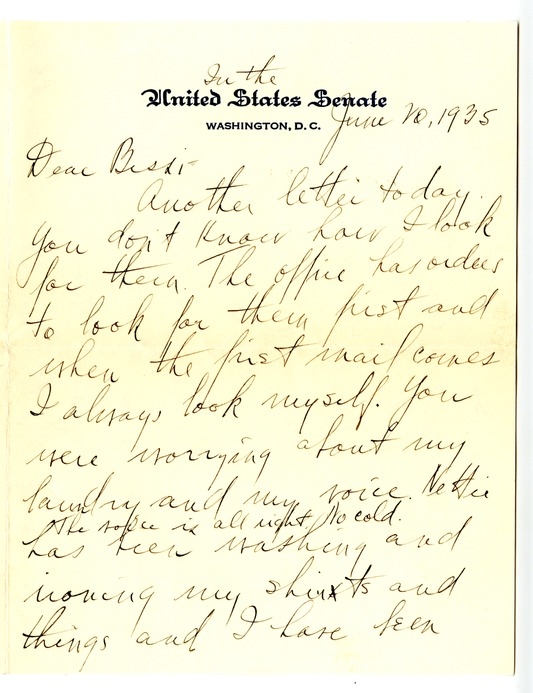 In the
United States Senate
WASHINGTON, D. C.
June 20, 1935
Dear Bess:-
Another letter today.
You don't know how I look
for them. The office has orders
to look for them first and
when the first mail comes
I always look myself. You
were worrying about my
laundry and my voice. Nettie
The voice is all right. No cold.
has been washing and
ironing my shirts and
things and I have been